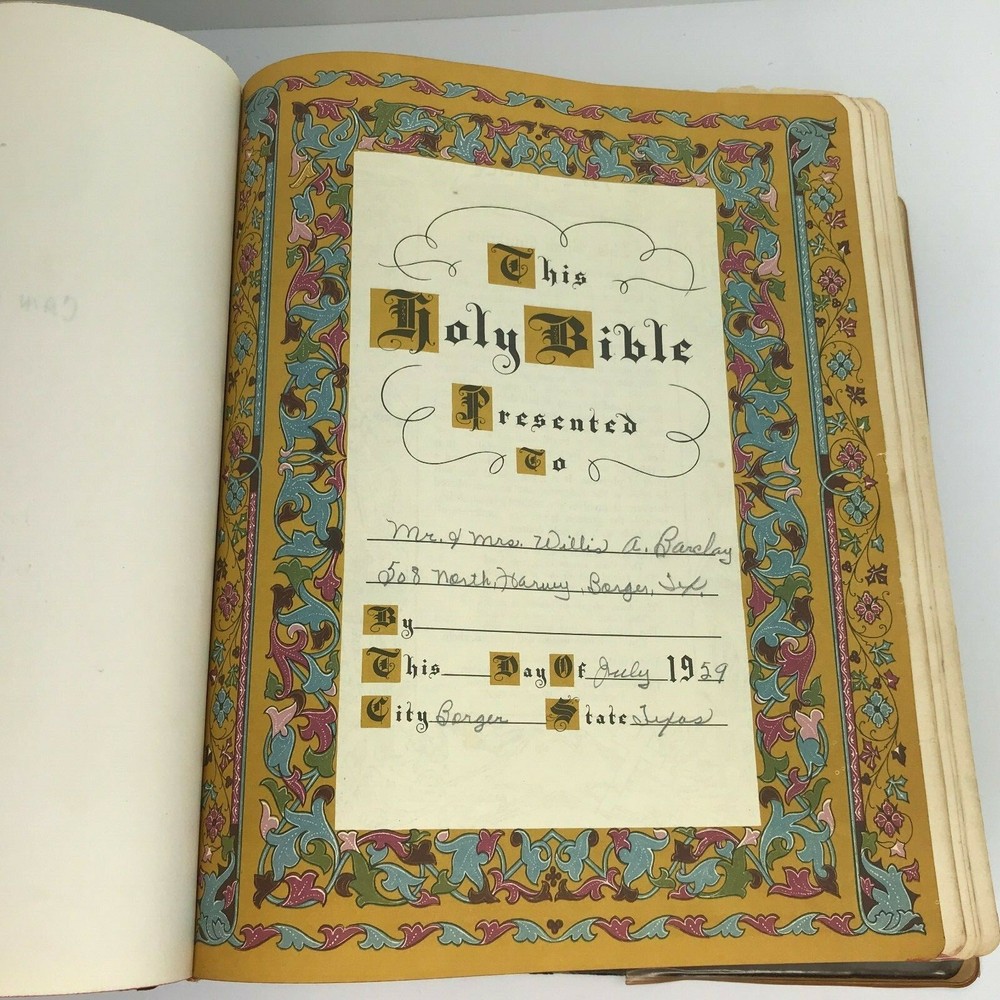 This
Holy Bible
Presented
To
Mr. & Mrs. Willis A. Barclay
508 North Harvey, Borger, Tex.
By
This Day Of July 1959
City Borger State Texas